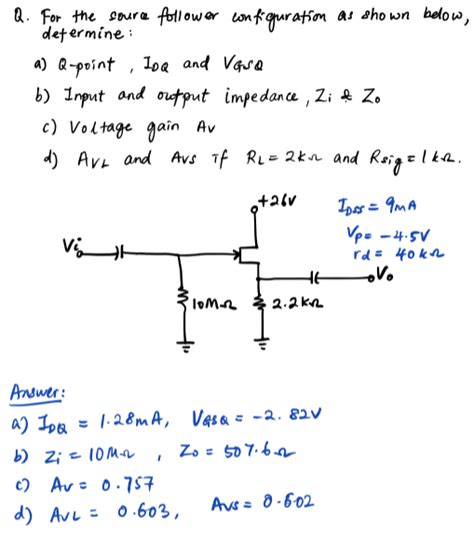 Q. For the source follower configuration as shown below,
determine:
a) Q-point, IDQ and VGSQ
b) Input and output impedance, Zi & Zo
c) Voltage gain Av
d) AVL and AVS if RL = 2kΩ and Rsig = 1kΩ.
+26V
IDSS = 9mA
VP = -4.5V
rd = 40kΩ
Vi
Vo
10MΩ
2.2kΩ
Answer:
a) IDQ = 1.28mA, VGSQ = -2.82V
b) Zi = 10MΩ, Zo = 507.6Ω
c) Av = 0.757
d) AVL = 0.603, AVS = 0.602